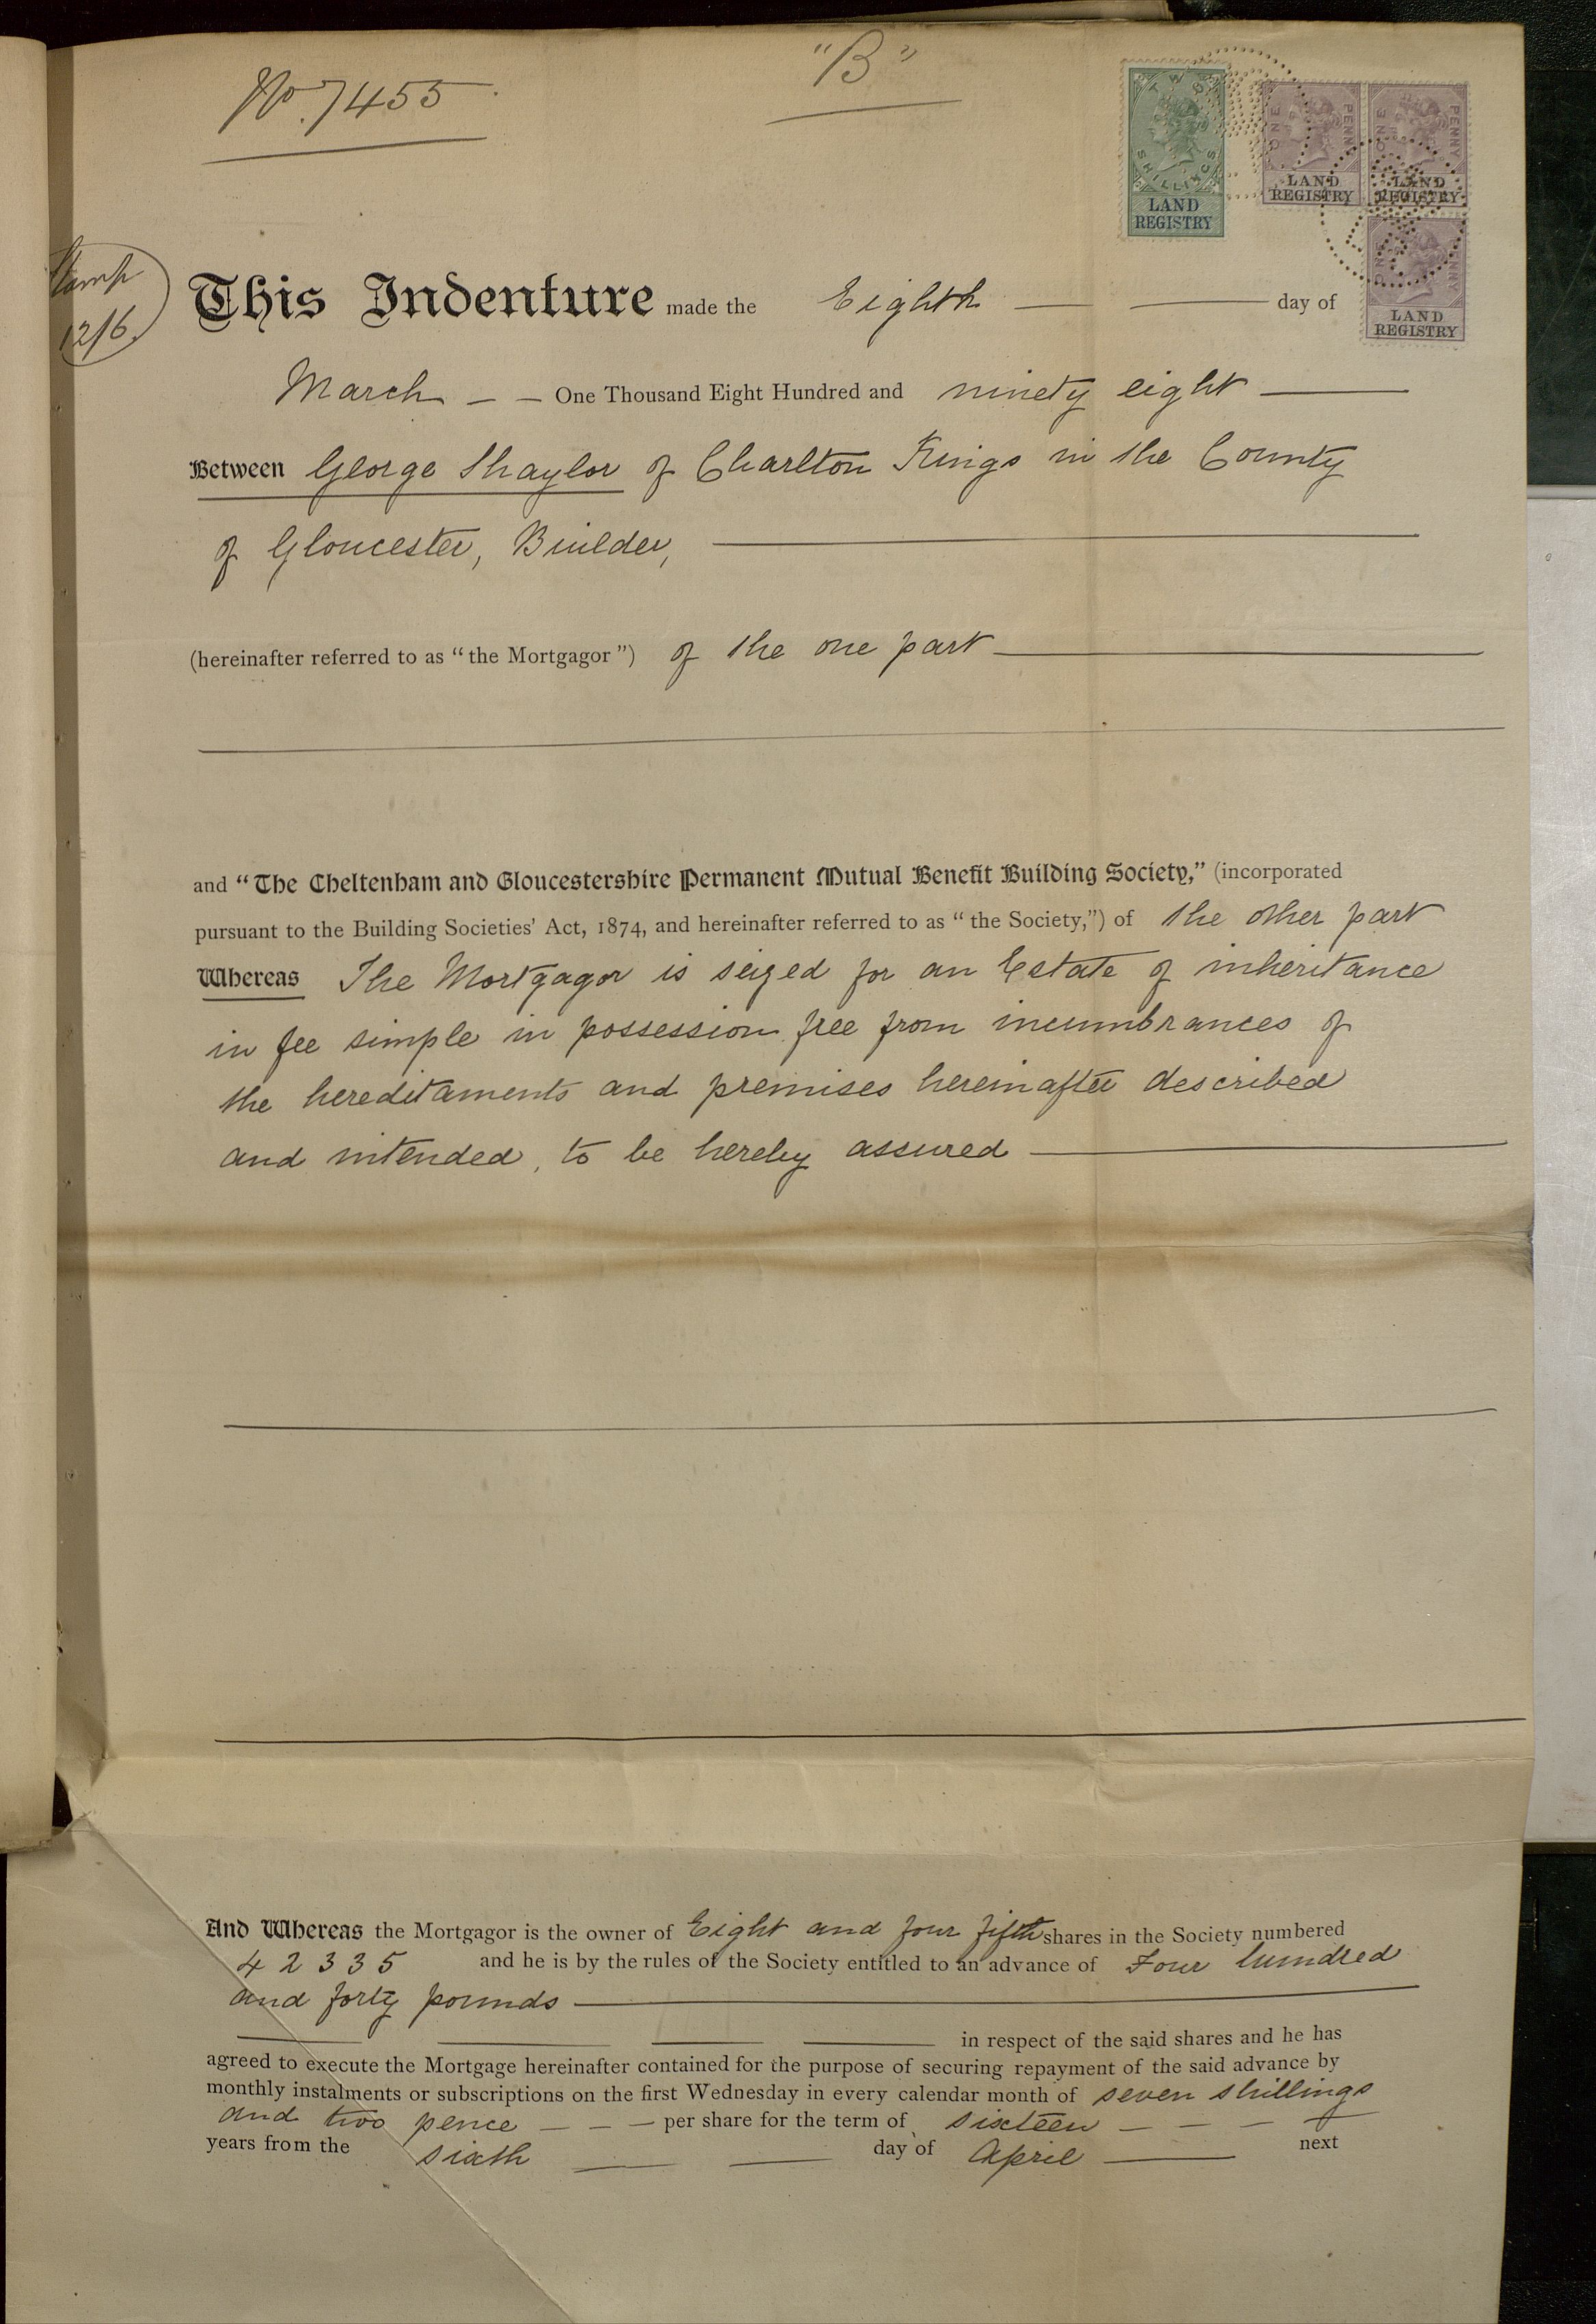 No. 7455
"B"
TWO SHILLINGS
LAND
REGISTRY
ONE PENNY
LAND
REGISTRY
ONE PENNY
LAND
REGISTRY
ONE PENNY
LAND
REGISTRY
Stamp
12/6
This Indenture made the Eighth day of
March One Thousand Eight Hundred and ninety eight
Between George Shaylor of Charlton Kings in the County
of Gloucester, Builder,
(hereinafter referred to as "the Mortgagor") of the one part
and "The Cheltenham and Gloucestershire Permanent Mutual Benefit Building Society," (incorporated
pursuant to the Building Societies' Act, 1874, and hereinafter referred to as "the Society,") of the other part
Whereas The Mortgagor is seized for an Estate of inheritance
in fee simple in possession free from incumbrances of
the hereditaments and premises hereinafter described
and intended, to be hereby assured
And Whereas the Mortgagor is the owner of Eight and four fifth shares in the Society numbered
42335 and he is by the rules of the Society entitled to an advance of Four hundred
and forty pounds
in respect of the said shares and he has
agreed to execute the Mortgage hereinafter contained for the purpose of securing repayment of the said advance by
monthly instalments or subscriptions on the first Wednesday in every calendar month of seven shillings
and two pence per share for the term of sixteen
years from the sixth day of April next